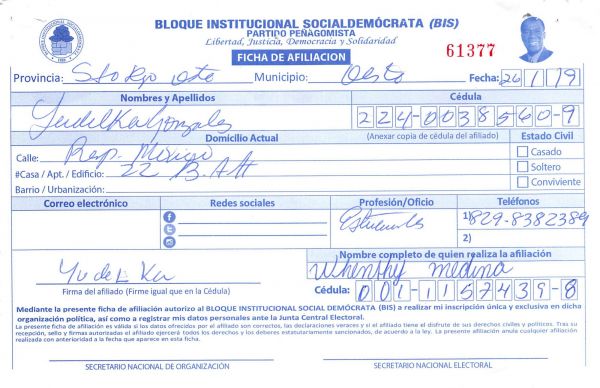 BLOQUE INSTITUCIONAL SOCIALDEMÓCRATA (BIS)
PARTIDO PEÑAGOMISTA
Libertad, Justicia, Democracia y Solidaridad
FICHA DE AFILIACION
61377
Provincia: Sto Dgo Ote Municipio: Oeste Fecha: 26/1/19
Nombres y Apellidos Cédula
Yudelka Gonzales 224-0038560-9
Domicilio Actual (Anexar copia de cédula del afiliado) Estado Civil
Calle: Rep. Mexico Casado
#Casa / Apt. / Edificio: 22 B. Soltero
Barrio / Urbanización: Conviviente
Correo electrónico Redes sociales Profesión/Oficio Teléfonos
1) 829-8382389
2)
Nombre completo de quien realiza la afiliación
Yudelka Whenthy Medina
Firma del afiliado (Firme igual que en la Cédula) Cédula: 001-1157439-8
Mediante la presente ficha de afiliación autorizo al BLOQUE INSTITUCIONAL SOCIAL DEMÓCRATA (BIS) a realizar mi inscripción única y exclusiva en dicha
organización política, así como a registrar mis datos personales ante la Junta Central Electoral.
La presente ficha de afiliación es válida si los datos ofrecidos por el afiliado son correctos, las declaraciones veraces y si el afiliado tiene el disfrute de sus derechos civiles y políticos. Tras su
recepción, sello y firmas autorizadas el afiliado ejercerá todos los derechos y los deberes estatutariamente sancionados, de acuerdo a la ley. La presente afiliación anula cualquier afiliación
realizada con anterioridad a la fecha que aparece en esta ficha.
SECRETARIO NACIONAL DE ORGANIZACIÓN SECRETARIO NACIONAL ELECTORAL